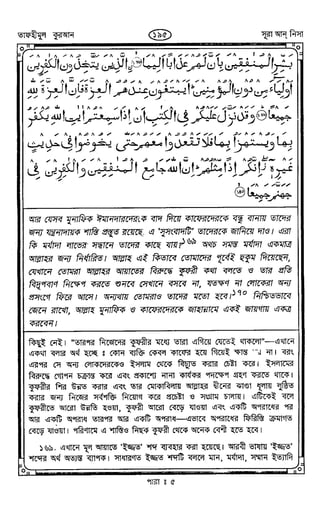 তাফহীমুল কুরআন
১৯৫
সূরা আন্ নিসা
بَشِّرِ الْمُنٰفِقِيْنَ بِاَنَّ لَهُمْ عَذَابًا اَلِيْمَا ۨ الَّذِيْنَ يَتَّخِذُوْنَ الْكٰفِرِيْنَ
اَوْلِيَآءَ مِنْ دُوْنِ الْمُؤْمِنِيْنَ ؕ اَيَبْتَغُوْنَ عِنْدَهُمُ الْعِزَّةَ فَاِنَّ الْعِزَّةَ لِلّٰهِ
جَمِيْعًا وَقَدْ نَزَّلَ عَلَيْكُمْ فِى الْكِتٰبِ اَنْ اِذَا سَمِعْتُمْ اٰيٰتِ اللّٰهِ يُكْفَرُ
بِهَا وَيُسْتَهْزَاُ بِهَا فَلَا تَقْعُدُوْا مَعَهُمْ حَتّٰى يَخُوْضُوْا فِىْ حَدِيْثٍ
غَيْرِهٖٓ ۖ اِنَّكُمْ اِذًا مِّثْلُهُمْ ؕ اِنَّ اللّٰهَ جَامِعُ الْمُنٰفِقِيْنَ وَالْكٰفِرِيْنَ فِىْ
جَهَنَّمَ جَمِيْعَا
আর যেসব মুনাফিক ঈমানদারদেরকে বাদ দিয়ে কাফেরদেরকে বন্ধু বানায় তাদের
জন্য যন্ত্রনাদায়ক শাস্তি প্রস্তুত রয়েছে, এ "সুসংবাদটি" তাদেরকে জানিয়ে দাও। এরা
কি মর্যাদা লাভের সন্ধানে তাদের কাছে যায়?১৬৯ অথচ সমস্ত মর্যাদা একমাত্র
আল্লাহর জন্য নির্ধারিত। আল্লাহ এই কিতাবে তোমাদের পূর্বেই হুকুম দিয়েছেন,
যেখানে তোমরা আল্লাহর আয়াতের বিরুদ্ধে কুফরী কথা বলতে ও তার প্রতি
বিদ্রূপবাণ নিক্ষেপ করতে শুনবে সেখানে বসবে না, যতক্ষণ না লোকেরা অন্য
প্রসংগে ফিরে আসে। অন্যথায় তোমরাও তাদের মতো হবে।১৭০ নিশ্চিতভাবে
জেনে রাখো, আল্লাহ মুনাফিক ও কাফেরদেরকে জাহান্নামে একই জায়গায় একত্র
করবেন।
কিছুই নেই। "তারপর নিজেদের কুফরীর মধ্যে তারা এগিয়ে যেতেই থাকলো"—এখানে
একথা বলার অর্থ হচ্ছে ঃ কোন ব্যক্তি কেবল কাফের হয়ে গিয়েই ক্ষান্ত না। বরং
এরপর সে অন্য লোকদেরকেও ইসলাম থেকে বিচ্যুত করার চেষ্টা করে। ইসলামের
বিরুদ্ধে গোপন চক্রান্ত করে এবং প্রকাশ্যে নানা কার্যকর পদক্ষেপ গ্রহণ করতে থাকে।
কুফরীর শির উন্নত করার এবং তার মোকাবিলায় আল্লাহর দীনের ঝাণ্ডা ধূলায় লুন্ঠিত
করার জন্য নিজের সর্বশক্তি নিয়োগ করে প্রচেষ্টা ও সংগ্রাম চালায়। এটিকেই বলে
কুফরীতে আরো উন্নতি হওয়া, কুফরী আরো বেড়ে যাওয়া এবং একটি অপরাধের পর
আর একটি অপরাধ তারপর আর একটি অপরাধ—এভাবে অপরাধের ফিরিস্তি ক্রমাগত
বেড়ে যাওয়া। পরিণামে এ শাস্তিও নিছক কুফরী থেকে অনেক বেশী হতে হবে।
১৬৯. এখানে মূল আয়াতে 'ইজ্জত' শব্দ ব্যবহার করা হয়েছে। আরবী ভাষায় 'ইজ্জত'
শব্দের অর্থ অত্যন্ত ব্যাপক। সাধারণত ইজ্জত শব্দটি বললে মান, মর্যাদা, সম্মান ইত্যাদি
পারা ঃ ৫